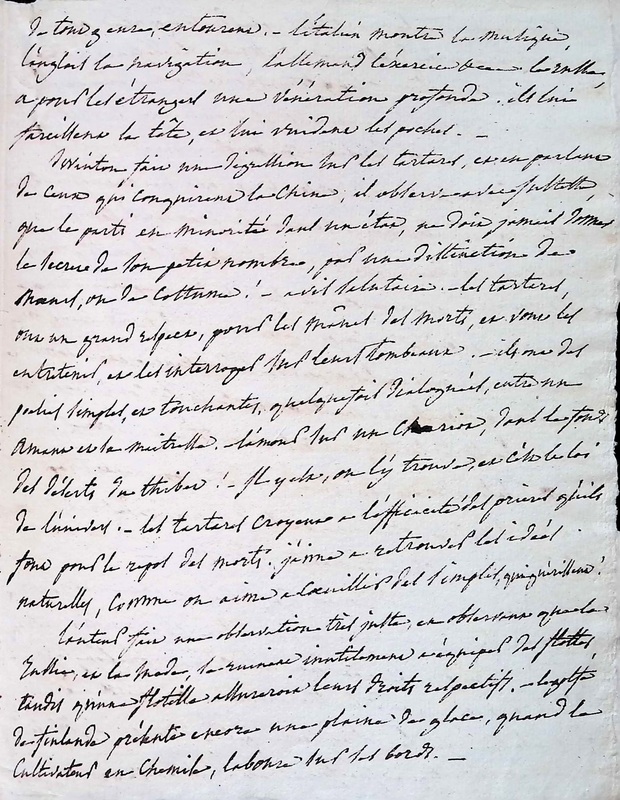 de tous genre, entourent. – l'italien montre la musique,
l'anglois la navigation, l'allemand l'exercice &c – le russe,
a pour les etrangers une vénération profonde. ils lui
farcissent la tête, et lui vuident les poches. –
fait une digression sur les tartares, et en parlant
de ceux qui conquirent la Chine, il observe avec justesse,
que le parti en minorité dans un état, ne doit jamais donner
le secret de son petit nombre, par une distinction de
mœurs, ou de costume ! – avis salutaire. – les tartares,
ont un grand respect, pour les mânes des morts, et vont les
entretenir, et les interroger sur leurs tombeaux. – ils ont des
poësies simples, et touchantes, quelquefois dialoguées, entre un
amant et sa maitresse. – l'amour sur un chariot, dans le fond
des déserts du thibet ! – il y est, on l'y trouve, et c'est le roi
de l'univers. – les tartares croyent a l'efficacité des prieres qu'ils
font pour le repos des morts. j'aime a retrouver les idées
naturelles, comme on aime a cueillir des simples, qui guérissent !
l'auteur fait une observation très juste, en observant que la
russie, et la suede, se ruinent inutilement a équiper des flottes,
tandis qu'une flotille assureroit leurs droits respectifs. – le golfe
de finlande présente encore une plaine de glace, quand le
cultivateur en chemise, laboure sur ses bords. –